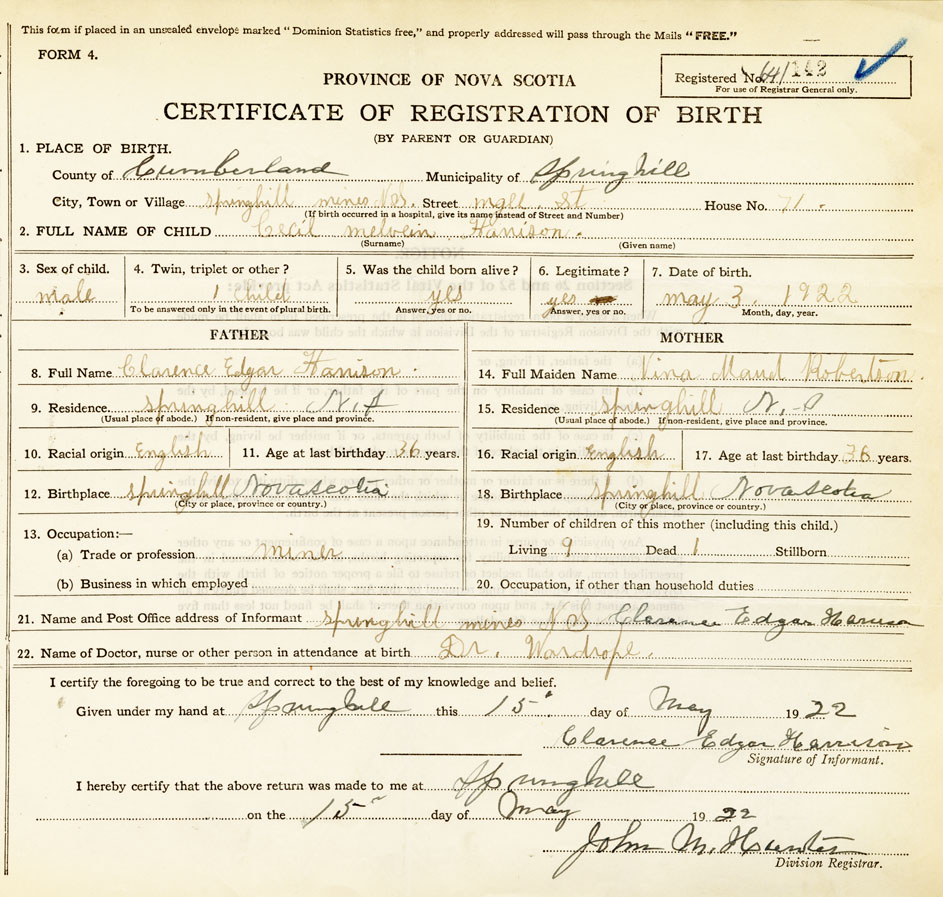 This form if placed in an unsealed envelope marked "Dominion Statistics free," and properly addressed will pass through the Mails "FREE."
FORM 4.
Registered No. 142
For use of Registrar General only.
PROVINCE OF NOVA SCOTIA
CERTIFICATE OF REGISTRATION OF BIRTH
(BY PARENT OR GUARDIAN)
1. PLACE OF BIRTH.
County of Cumberland Municipality of Springhill
City, Town or Village Springhill mines N.S. Street mall St House No. 71.
(If birth occurred in a hospital, give its name instead of Street and Number)
2. FULL NAME OF CHILD Cecil melvein Harrison.
(Surname) (Given name)
3. Sex of child. 4. Twin, triplet or other? 5. Was the child born alive? 6. Legitimate? 7. Date of birth.
male 1 child yes yes may 3. 1922
To be answered only in the event of plural birth. Answer, yes or no. Answer, yes or no. Month, day, year.
FATHER MOTHER
8. Full Name Clarence Edgar Harrison. 14. Full Maiden Name Nina Maud Robertson.
9. Residence. Springhill N.S 15. Residence Springhill N.S
(Usual place of abode.) If non-resident, give place and province. (Usual place of abode.) If non-resident, give place and province.
10. Racial origin English 11. Age at last birthday 36 years. 16. Racial origin English 17. Age at last birthday 36 years.
12. Birthplace Springhill Nova Scotia 18. Birthplace Springhill Nova Scotia
(City or place, province or country.) (City or place, province or country.)
13. Occupation:— 19. Number of children of this mother (including this child.)
(a) Trade or profession miner Living 9 Dead 1 Stillborn
(b) Business in which employed 20. Occupation, if other than household duties
21. Name and Post Office address of Informant Springhill mines N S Clarence Edgar Harrison
22. Name of Doctor, nurse or other person in attendance at birth Dr. Wardrope.
I certify the foregoing to be true and correct to the best of my knowledge and belief.
Given under my hand at Springhill this 15 day of May 1922
Clarence Edgar Harrison
Signature of Informant.
I hereby certify that the above return was made to me at Springhill
on the 15 day of May 1922
John M. Hunter
Division Registrar.